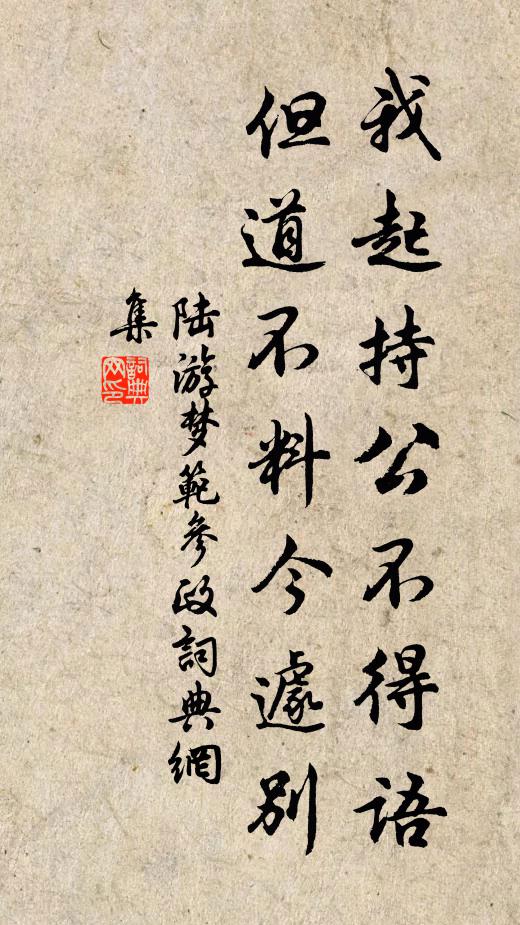 我起持公不得语
但道不料今遽别
陆游梦範參政詞典網
集
詞典
网印